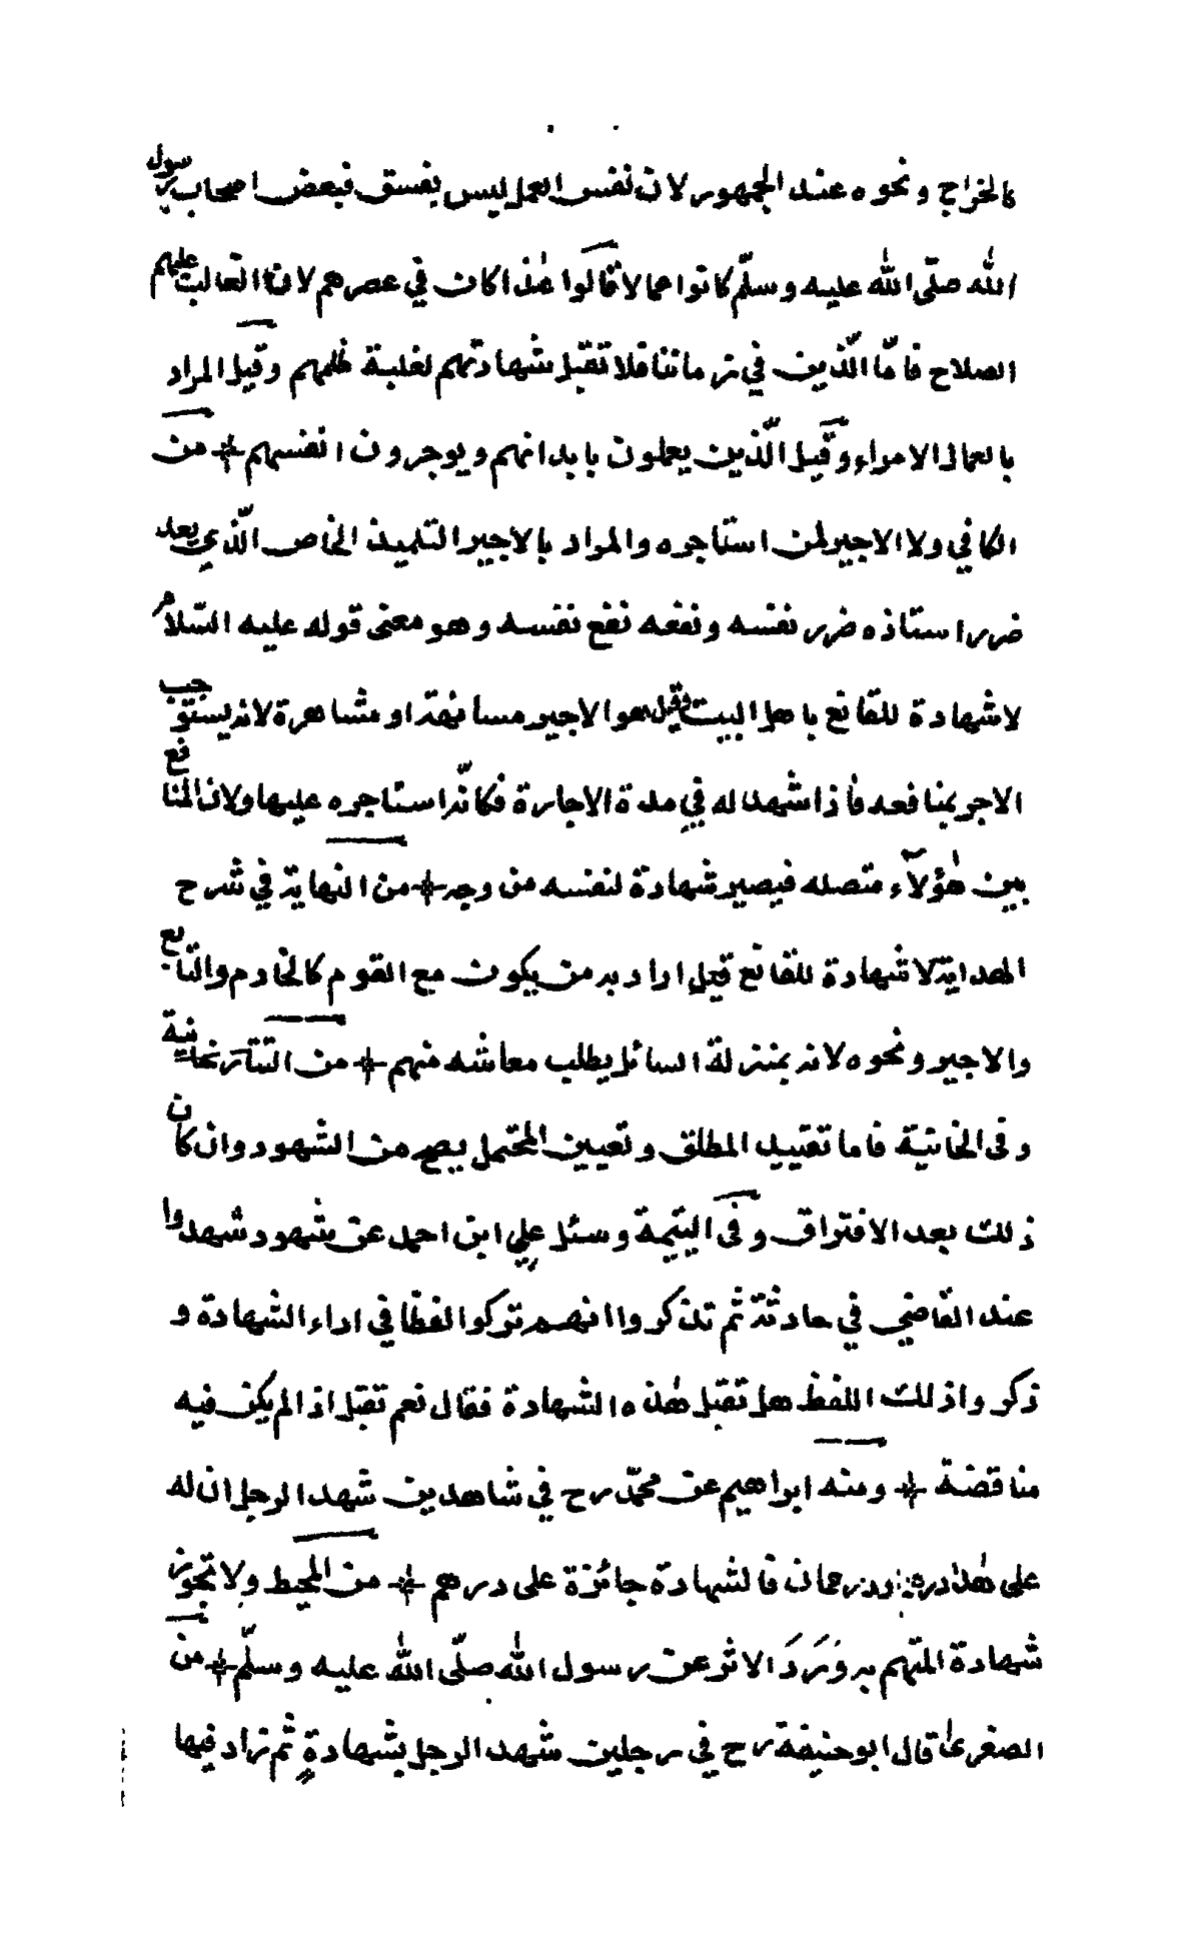 كالخراج ونحوه عند الجمهور لان نفس العمل ليس بفسق فبعض اصحاب رسول
الله صلّى الله عليه وسلّم كانوا عمالا قالوا هٰذا كان في عصرهم لان الغالب عليهم
الصلاح فامّا الّذين في زماننا فلا تقبل شهادتهم لغلبة ظلمهم وقيل المراد
بالعمال الامراء وقيل الّذين يعملون بابدانهم ويوجرون انفسهم من
الكافي ولا الاجير لمن استاجره والمراد بالاجير التلميذ الخاص الّذي يعد
ضرر استاذه ضرر نفسه ونفعه نفع نفسه وهو معنى قوله عليه السّلام
لا شهادة للقانع باهل البيت وقيل هو الاجير مسانهة او مشاهرة لانه يستوجب
الاجر بمنافعه فاذا شهد له في مدة الاجارة فكانّه استاجره عليها ولان المنافع
بين هٰؤلآء متصله فيصير شهادة لنفسه من وجه من النهاية في شرح
الهداية لا شهادة للقانع قيل اراد به من يكون مع القوم كالخادم والتابع
والاجير ونحوه لانه بمنزلة السائل يطلب معاشه منهم من التتارخانية
وفى الخانية فاما تقييد المطلق وتعيين المحتمل يصح من الشهود وان كان
ذلك بعد الافتراق وفى اليتيمة وسئل علي ابن احمد عن شهود شهدوا
عند القاضي في حادثة ثم تذكروا انهم تركوا لفظا في اداء الشهادة و
ذكروا ذلك اللفظ هل تقبل هٰذه الشهادة فقال نعم تقبل اذا لم يكن فيه
مناقضة ومنه ابراهيم عن محمّد رح في شاهدين شهدا لرجل ان له
على هٰذا درهم او درهمان فالشهادة جائزة على درهم من المحيط ولا تجوز
شهادة المتهم به وَرَدَ الاثر عن رسول الله صلّى الله عليه وسلّم من
الصغرىٰ قال ابو حنيفة رح في رجلين شهدا لرجل بشهادةٍ ثم زاد فيها